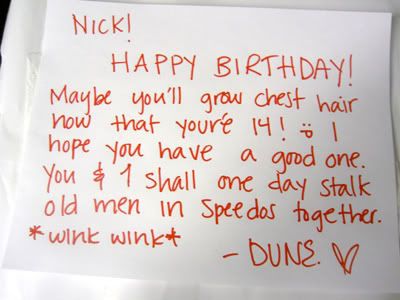 NICK!
HAPPY BIRTHDAY!
Maybe you'll grow chest hair
now that you're 14! :) I
hope you have a good one.
You & I shall one day stalk
old men in Speedos together.
*wink wink*
- DUNE. ♡